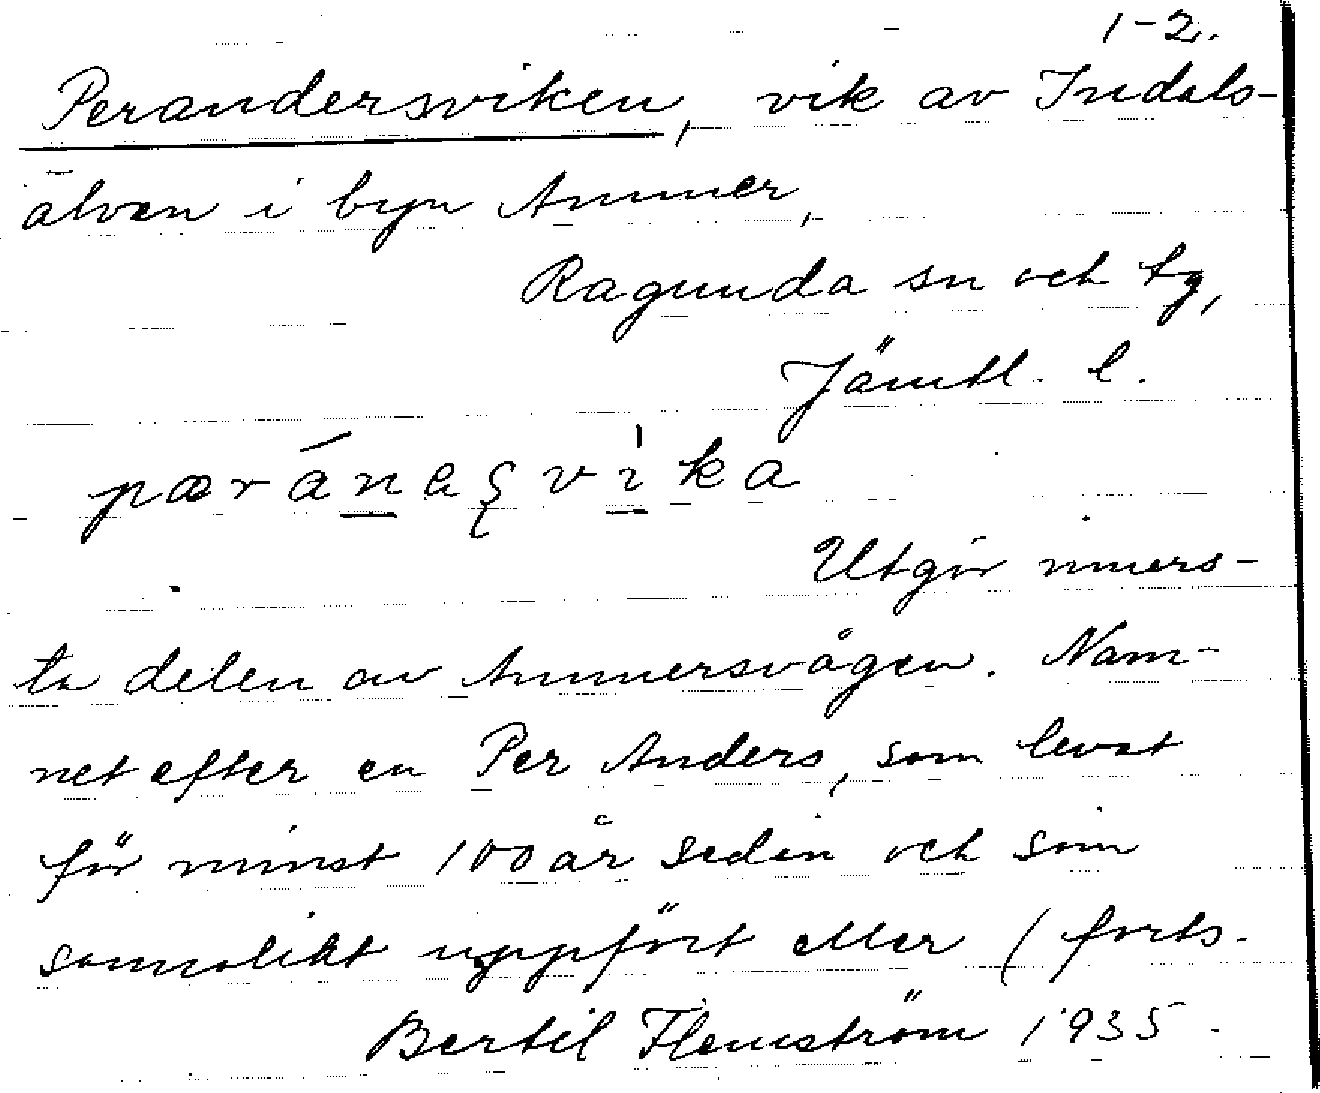 1-2.
Perandersviken, vik av Indals-
älven i byn Ammer,
Ragunda sn och tg,
Jämtl. l.
pæránaʂvìka
Utgör inners-
ta delen av Ammersvågen. Nam-
net efter en Per Anders, som levat
för minst 100 år sedan och som
sannolikt uppfört eller (forts.
Bertil Flemström 1935.